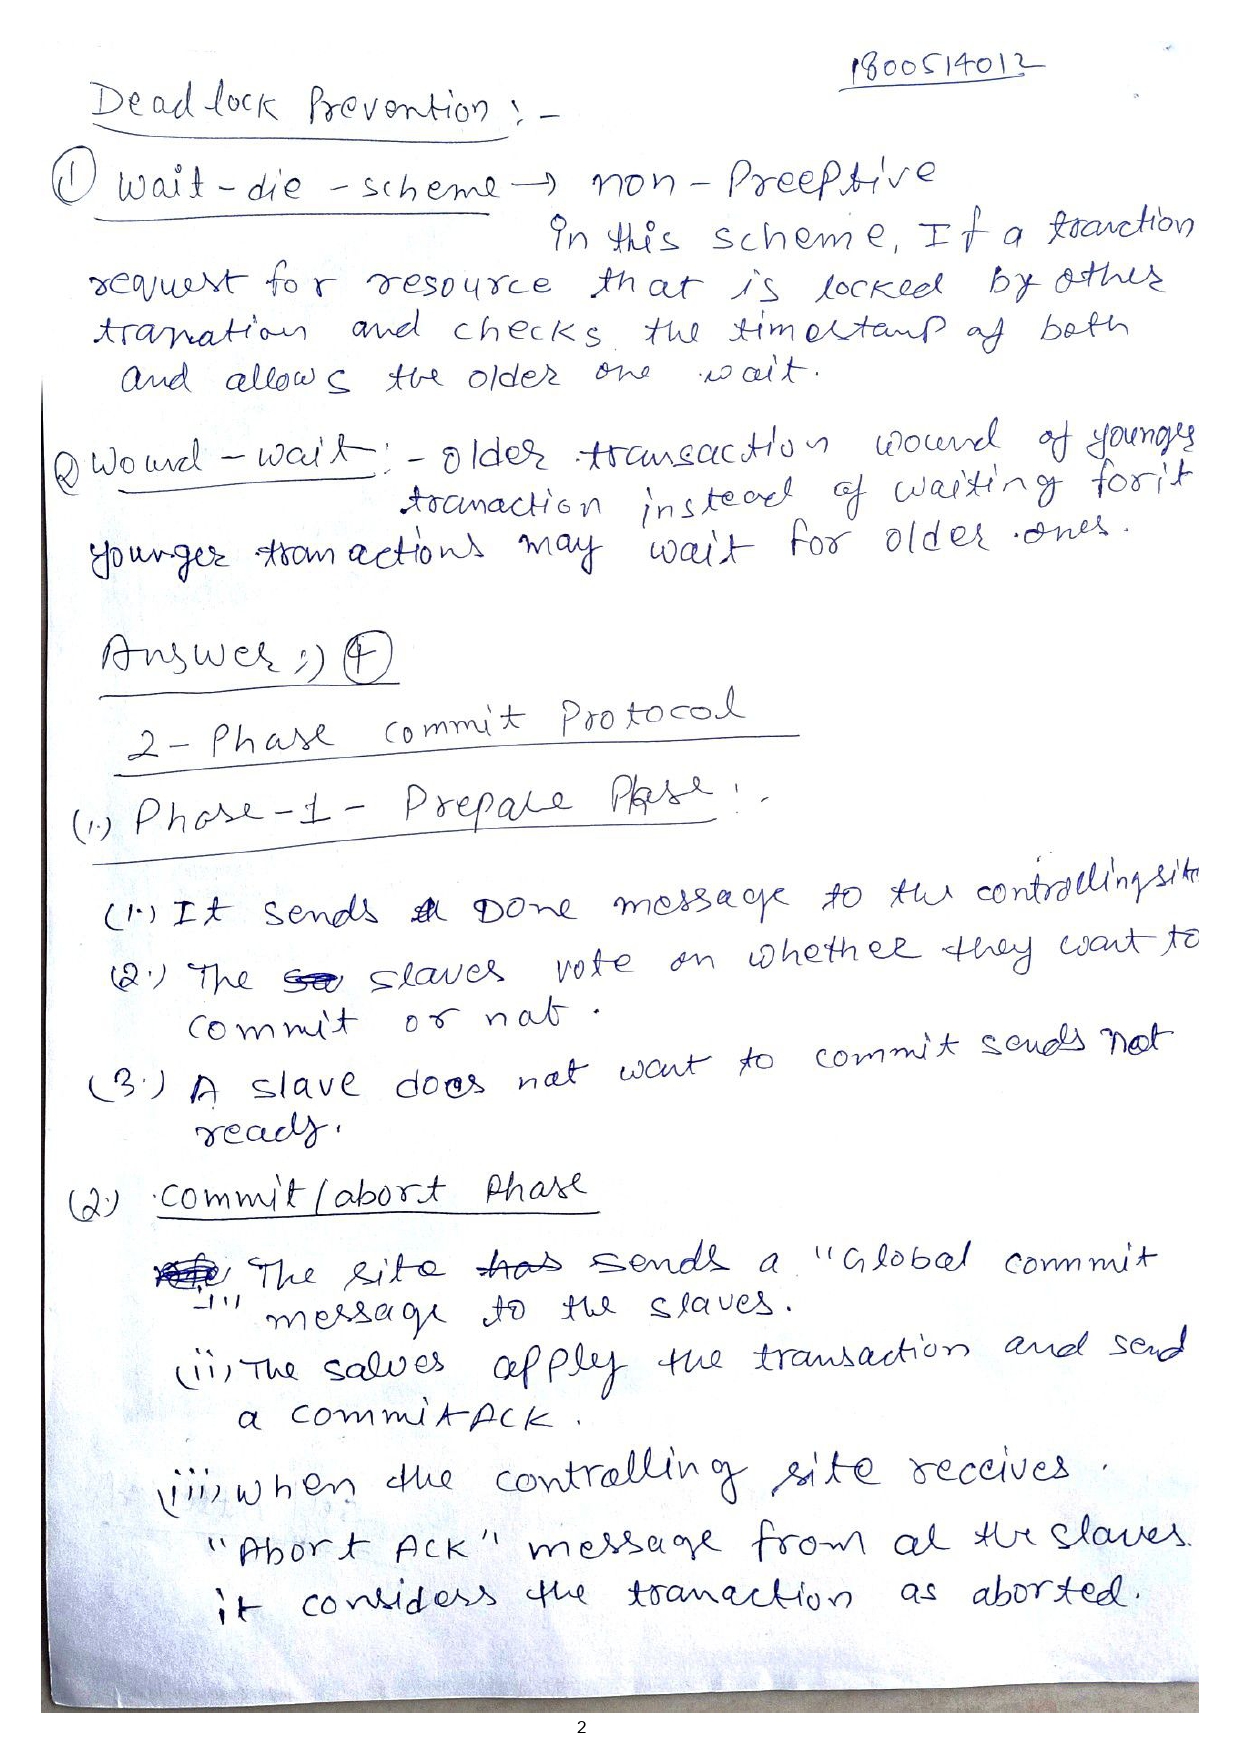 1800514012
Deadlock Prevention :-
① wait-die-scheme → non-Preeptive
in this scheme, If a tranction
request for resource that is locked by other
tranation and checks the timestamp of both
and allows the older one wait.
② Wound-wait :- older transaction wound of younger
tranaction instead of waiting for it
younger tranactions may wait for older ones.
Answer :) ④
2-Phase commit Protocol
(1.) Phase-1- Prepare Phase :-
(1.) It sends a Done message to the controlling site
(2.) The slaves vote on whether they want to
commit or not.
(3.) A slave does not want to commit sends not
ready.
(2.) commit/abort Phase
The site has sends a "Global commit
message to the slaves.
(ii) The salves apply the transaction and send
a commit ACK.
(iii) when the controlling site receives
"Abort ACK" message from al the slaves.
it considers the tranaction as aborted.
2